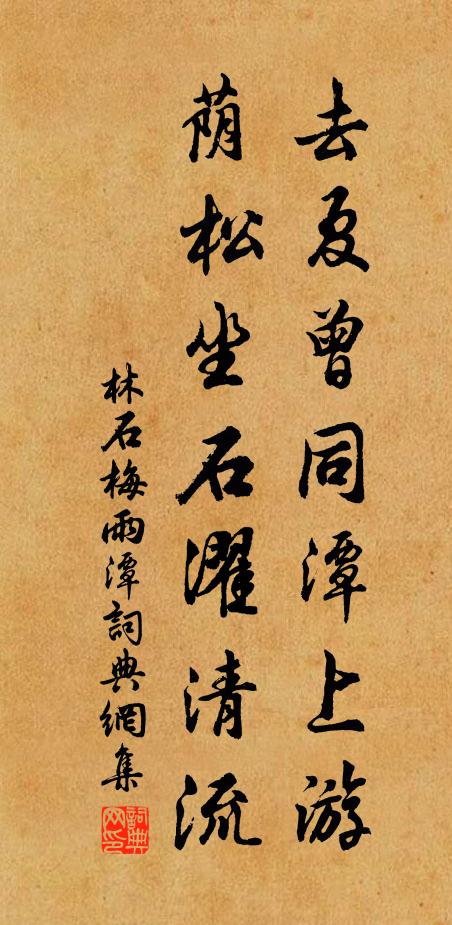 去夏曾同潭上游
荫松坐石濯清流
林石梅雨潭詞典網集
詞典网印